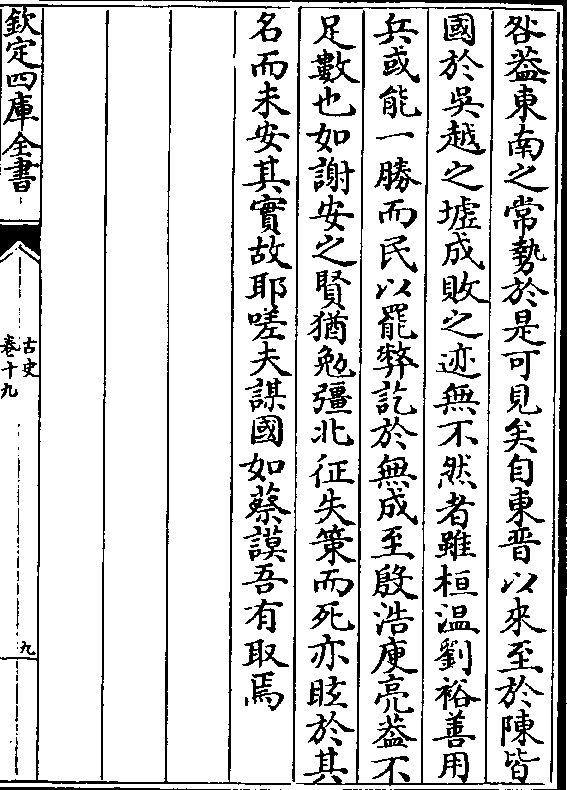 咎葢東南之常勢於是可見矣自東晉以來至於陳皆
國於吳越之墟成敗之迹無不然者雖桓温劉裕善用
兵或能一勝而民以罷弊訖於無成至殷浩庾亮葢不
足數也如謝安之賢猶勉彊北征失策而死亦眩於其
名而未安其實故耶嗟夫謀國如蔡謨吾有取焉
欽定四庫全書
古史
卷十九
九